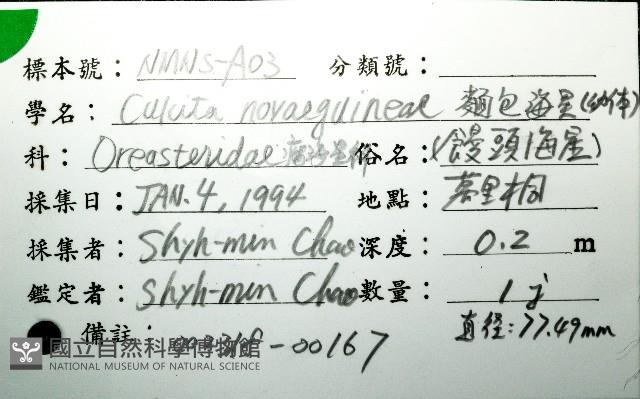 標本號： NMNS-A03 分類號：
學名： Culcita novaeguineae 麵包海星(幼体)
科： Oreasteridae 瘤海星科 俗名： (饅頭海星)
採集日： JAN. 4, 1994 地點： 萬里桐
採集者： Shyh-min Chao 深度： 0.2 m
鑑定者： Shyh-min Chao 數量： 1 j
備註： -00167 直徑: 77.49mm
國立自然科學博物館
NATIONAL MUSEUM OF NATURAL SCIENCE